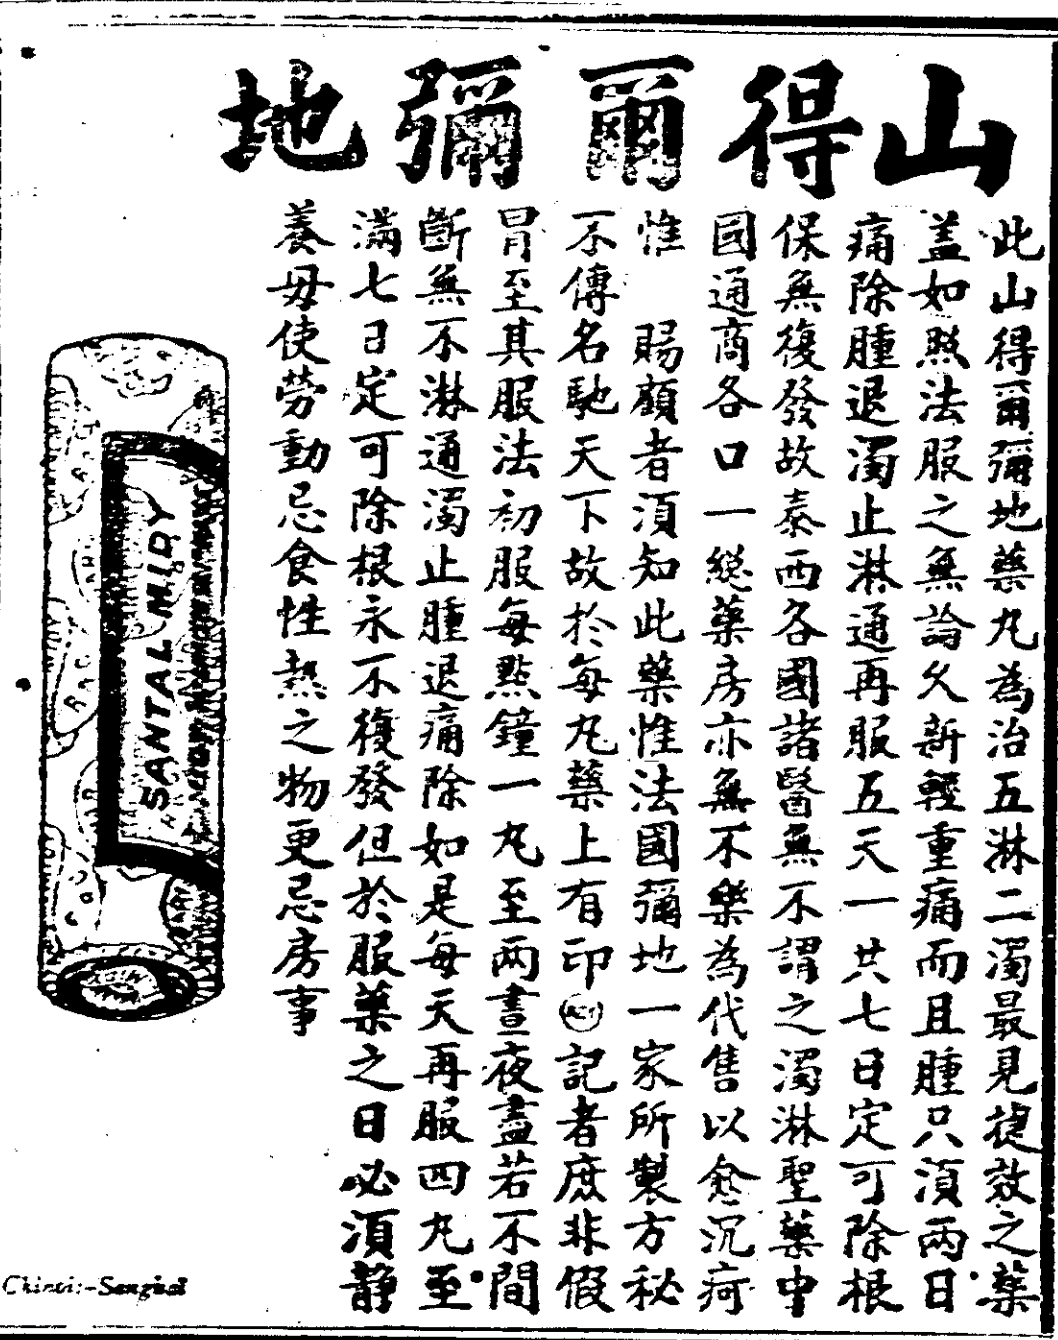 山得爾彌地
此山得爾彌地藥丸為治五淋二濁最見捷效之藥
蓋如照法服之無論久新輕重痛而且腫只須兩日
痛除腫退濁止淋通再服五天一共七日定可除根
保無復發故泰西各國諸醫無不謂之濁淋聖藥中
國通商各口一總藥房亦無不樂為代售以愈沉疴
惟 賜顧者須知此藥惟法國彌地一家所製方秘
不傳名馳天下故於每丸藥上有印記者庶非假
冒至其服法初服每點鐘一丸至兩晝夜盡若不間
斷無不淋通濁止腫退痛除如是每天再服四丸至
滿七日定可除根永不復發但於服藥之日必須静
養毋使勞動忌食性熱之物更忌房事
SANTAL MIDY